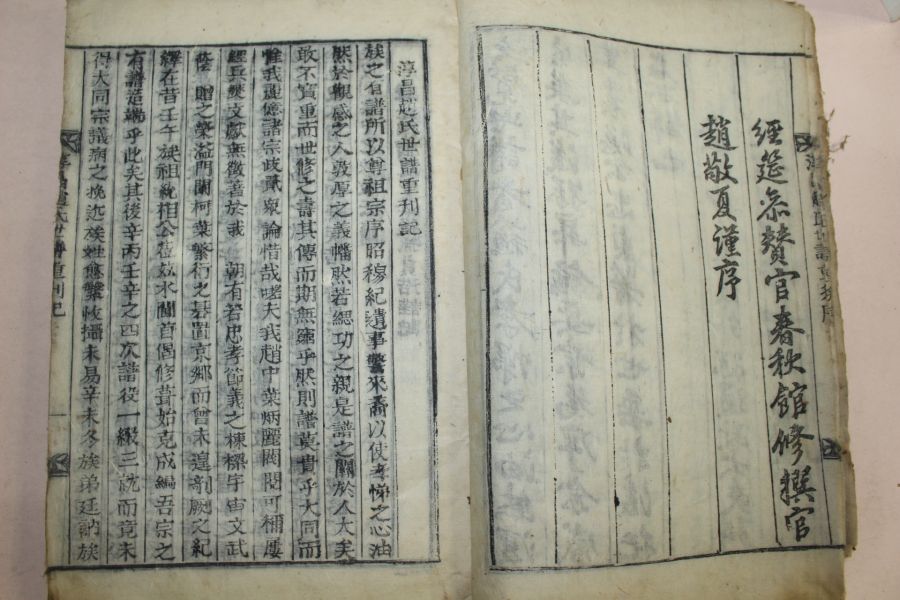 經筵叅贊官春秋館修撰官
趙敬夏謹序
淳昌趙氏世譜重刊記
族之有譜所以尊祖宗序昭穆紀遺事警來裔以使孝悌之心油
然於觀感之人敦厚之義幡然若緦功之親是譜之關於人大矣
敢不寶重而世修之壽其傳而期無窮乎然則譜莫貴乎大同而
惟我諸宗歧貳衆論惜哉嗟夫我趙中葉炳麗閥閱可補屢
經兵燹文獻無徵著於我 朝有若忠孝節義之棟樑宇宙文武
蔭 贈之榮溢門闌柯葉繁衍之基置京鄉而曾未遑剞劂之紀
繹在昔壬午族祖統相公莅玆水閫首偈修葺始克成編吾宗之
有譜造端乎此矣其後辛丙壬辛之四次譜役一綴三而竟未
得大同宗議病之挽近族姓繁收攝未易辛未冬族弟廷訥族